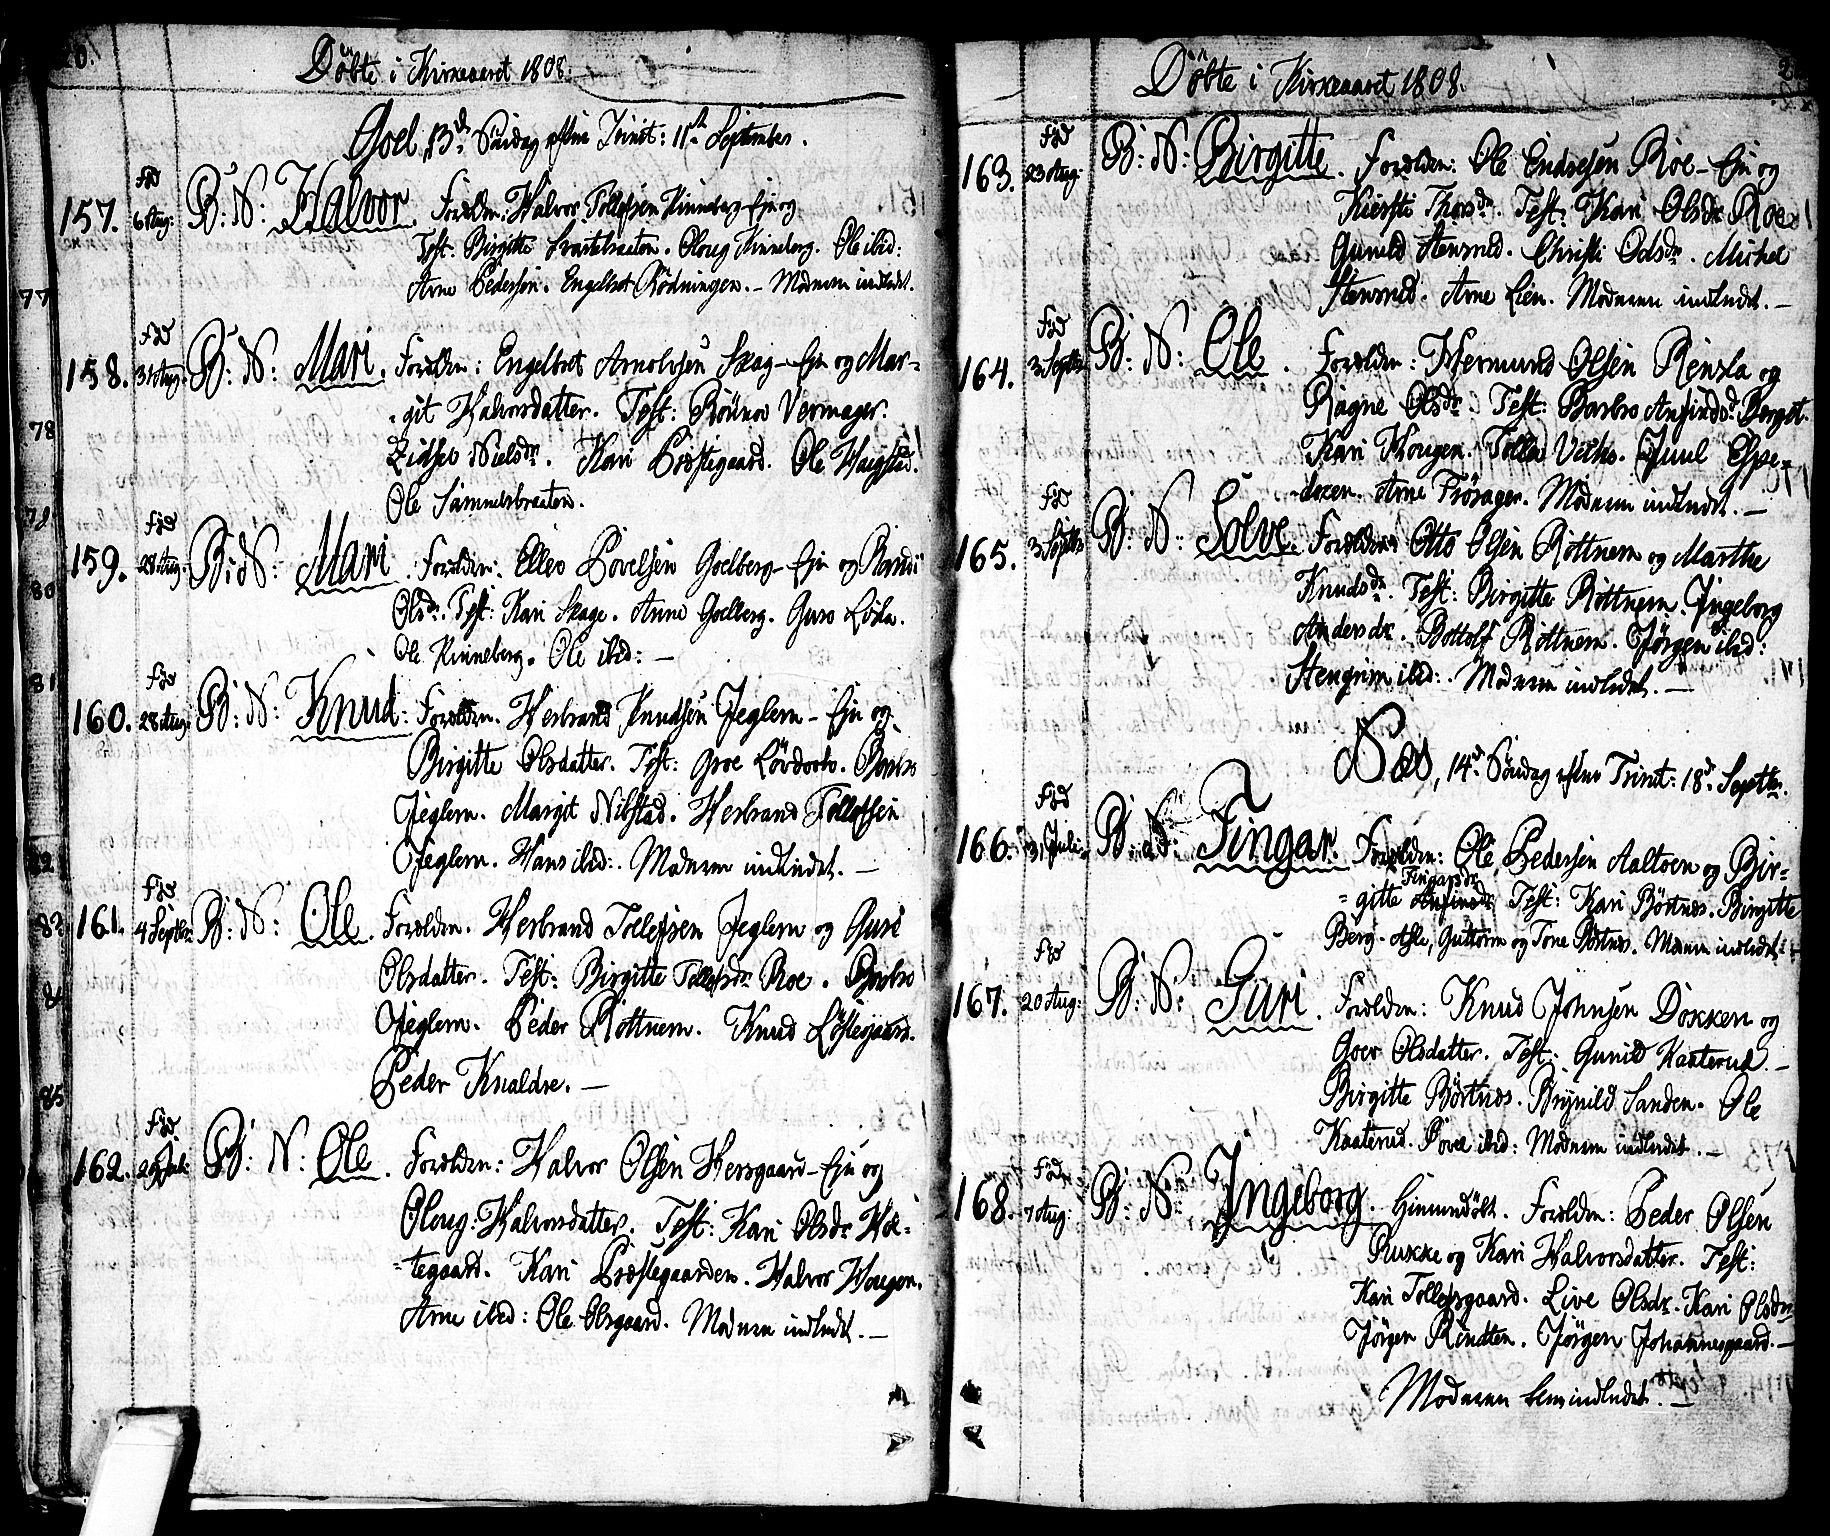 Döbte i Kirkeaaret 1808.
Goel, 13de Söndag efter Trinit: 11te September.
fød
157. 6 Aug: B: N: Halvor. Foreldre: Halvor Tollefsen Kinneberg Eju og
Test. Birgitte Svartebraaten. Oloug Kinneberg. Ole ibid:
Arne Pedersen. Engelbret Rödningen. - Moderen indledet.
77
fød
158. 31 Aug: B: N: Mari. Foreldre: Engelbret Arnolvsen Skag - Eju og Mar-
-git Halvorsdatter. Test: Rönnov Vermager.
78
Nielsdr. Kari Præstegaard. Ole Haugstad.
Ole Sammelsbraaten.
79
fød
159. 28 Aug: B: N: Mari. Foreldre: Ellev Povelsen Goelberg - Eju og Randi
80
Olsdr. Test: Kari Skage. Anne Goelberg. Guro
Ole Kinneberg. Ole ibid: -
81
fød
160. 28 Aug: B: N: Knud. Foreldre. Herbrand Knudsen Jeglem - Eju og
Birgitte Olsdatter. Test: Groe Barbro
Jeglem. Margit Nibstad. Herbrand Tollefsen
Jeglem. Hans ibid: Moderen indledet. -
82
fød
161. 4 Septbr: B: N: Ole. Foreldre. Herbrand Tollefsen Jeglem og Guri
83
Olsdatter. Test: Birgitte Tollefsdr Roe. Barbro
84
Jeglem. Peder Rottnem. Knud Löstegaard.
Peder Knaldre. -
85
fød
162. B: N: Ole. Foreldre: Halvor Olsen Hersgaard - Eju og
Oloug: Halvorsdatter. Test: Kari Olsdr Hol-
-tegaard. Kari Præstegaarden. Halvor Hougen.
Arne ibid: Ole Olsgaard. Moderen indledet. -
Döbte i Kirkeaaret 1808.
fød
163. 23 Aug: B: N: Birgitte. Foreldre: Ole Endresen Roe - Eju og
Kiersti Thorsdr. Test: Kari Olsdr Roe
Gunild Stensrud. Christi Olsdr. Michel
Stensrud. Arne Lien. Moderen indledet. -
fød
164. 3 Septbr B: N: Ole. Foreldre: Hermund Olsen Rensla og
Ragne Olsdr. Test: Barbro Anfindsdr Berget.
Kari Hougen. Tollev Juul Espe-
-dozen. Arne Frösager. Moderen indledet. -
fød
165. 3 Septbr B: N: Solve. Foreldre Otto Olsen Rottnem og Marthe
Knudsdr. Test: Birgitte Rottnem Ingeborg
Andersdr. Bottolf Rottnem. Jörgen ibid:
Stengrim ibid: Moderen indledet. -
Næs, 14de Söndag efter Trinit: 18de Septbr.
fød
166. 31 Juli B: N: Fingar. Foreldre: Ole Pedersen Aaltoen og Bir-
Fingarsdr
-gitte Test: Kari Börtnæs. Birgitte
Berg. Asle, Guttorm og Tone Börtnæs. Moderen indledet. -
fød
167. 20 Aug: B: N: Guri. Foreldre: Knud Johnsen Dokken og
Goer Olsdatter. Test: Gunild Kaaterud. -
Birgitte Börtnæs. Brynild Sanden. Ole
Kaaterud. Povel ibid: Moderen indledet. -
fød
168. 7 Aug: B: N: Ingeborg. Hiemmedöbt. Foreldre: Peder Olsen
Rukke og Kari Halvorsdatter. Test:
Kari Tollefsgaard. Live Olsdr. Kari Olsdr
Jörgen Rindten. Jörgen Johannesgaard. -
Moderen indledet. -